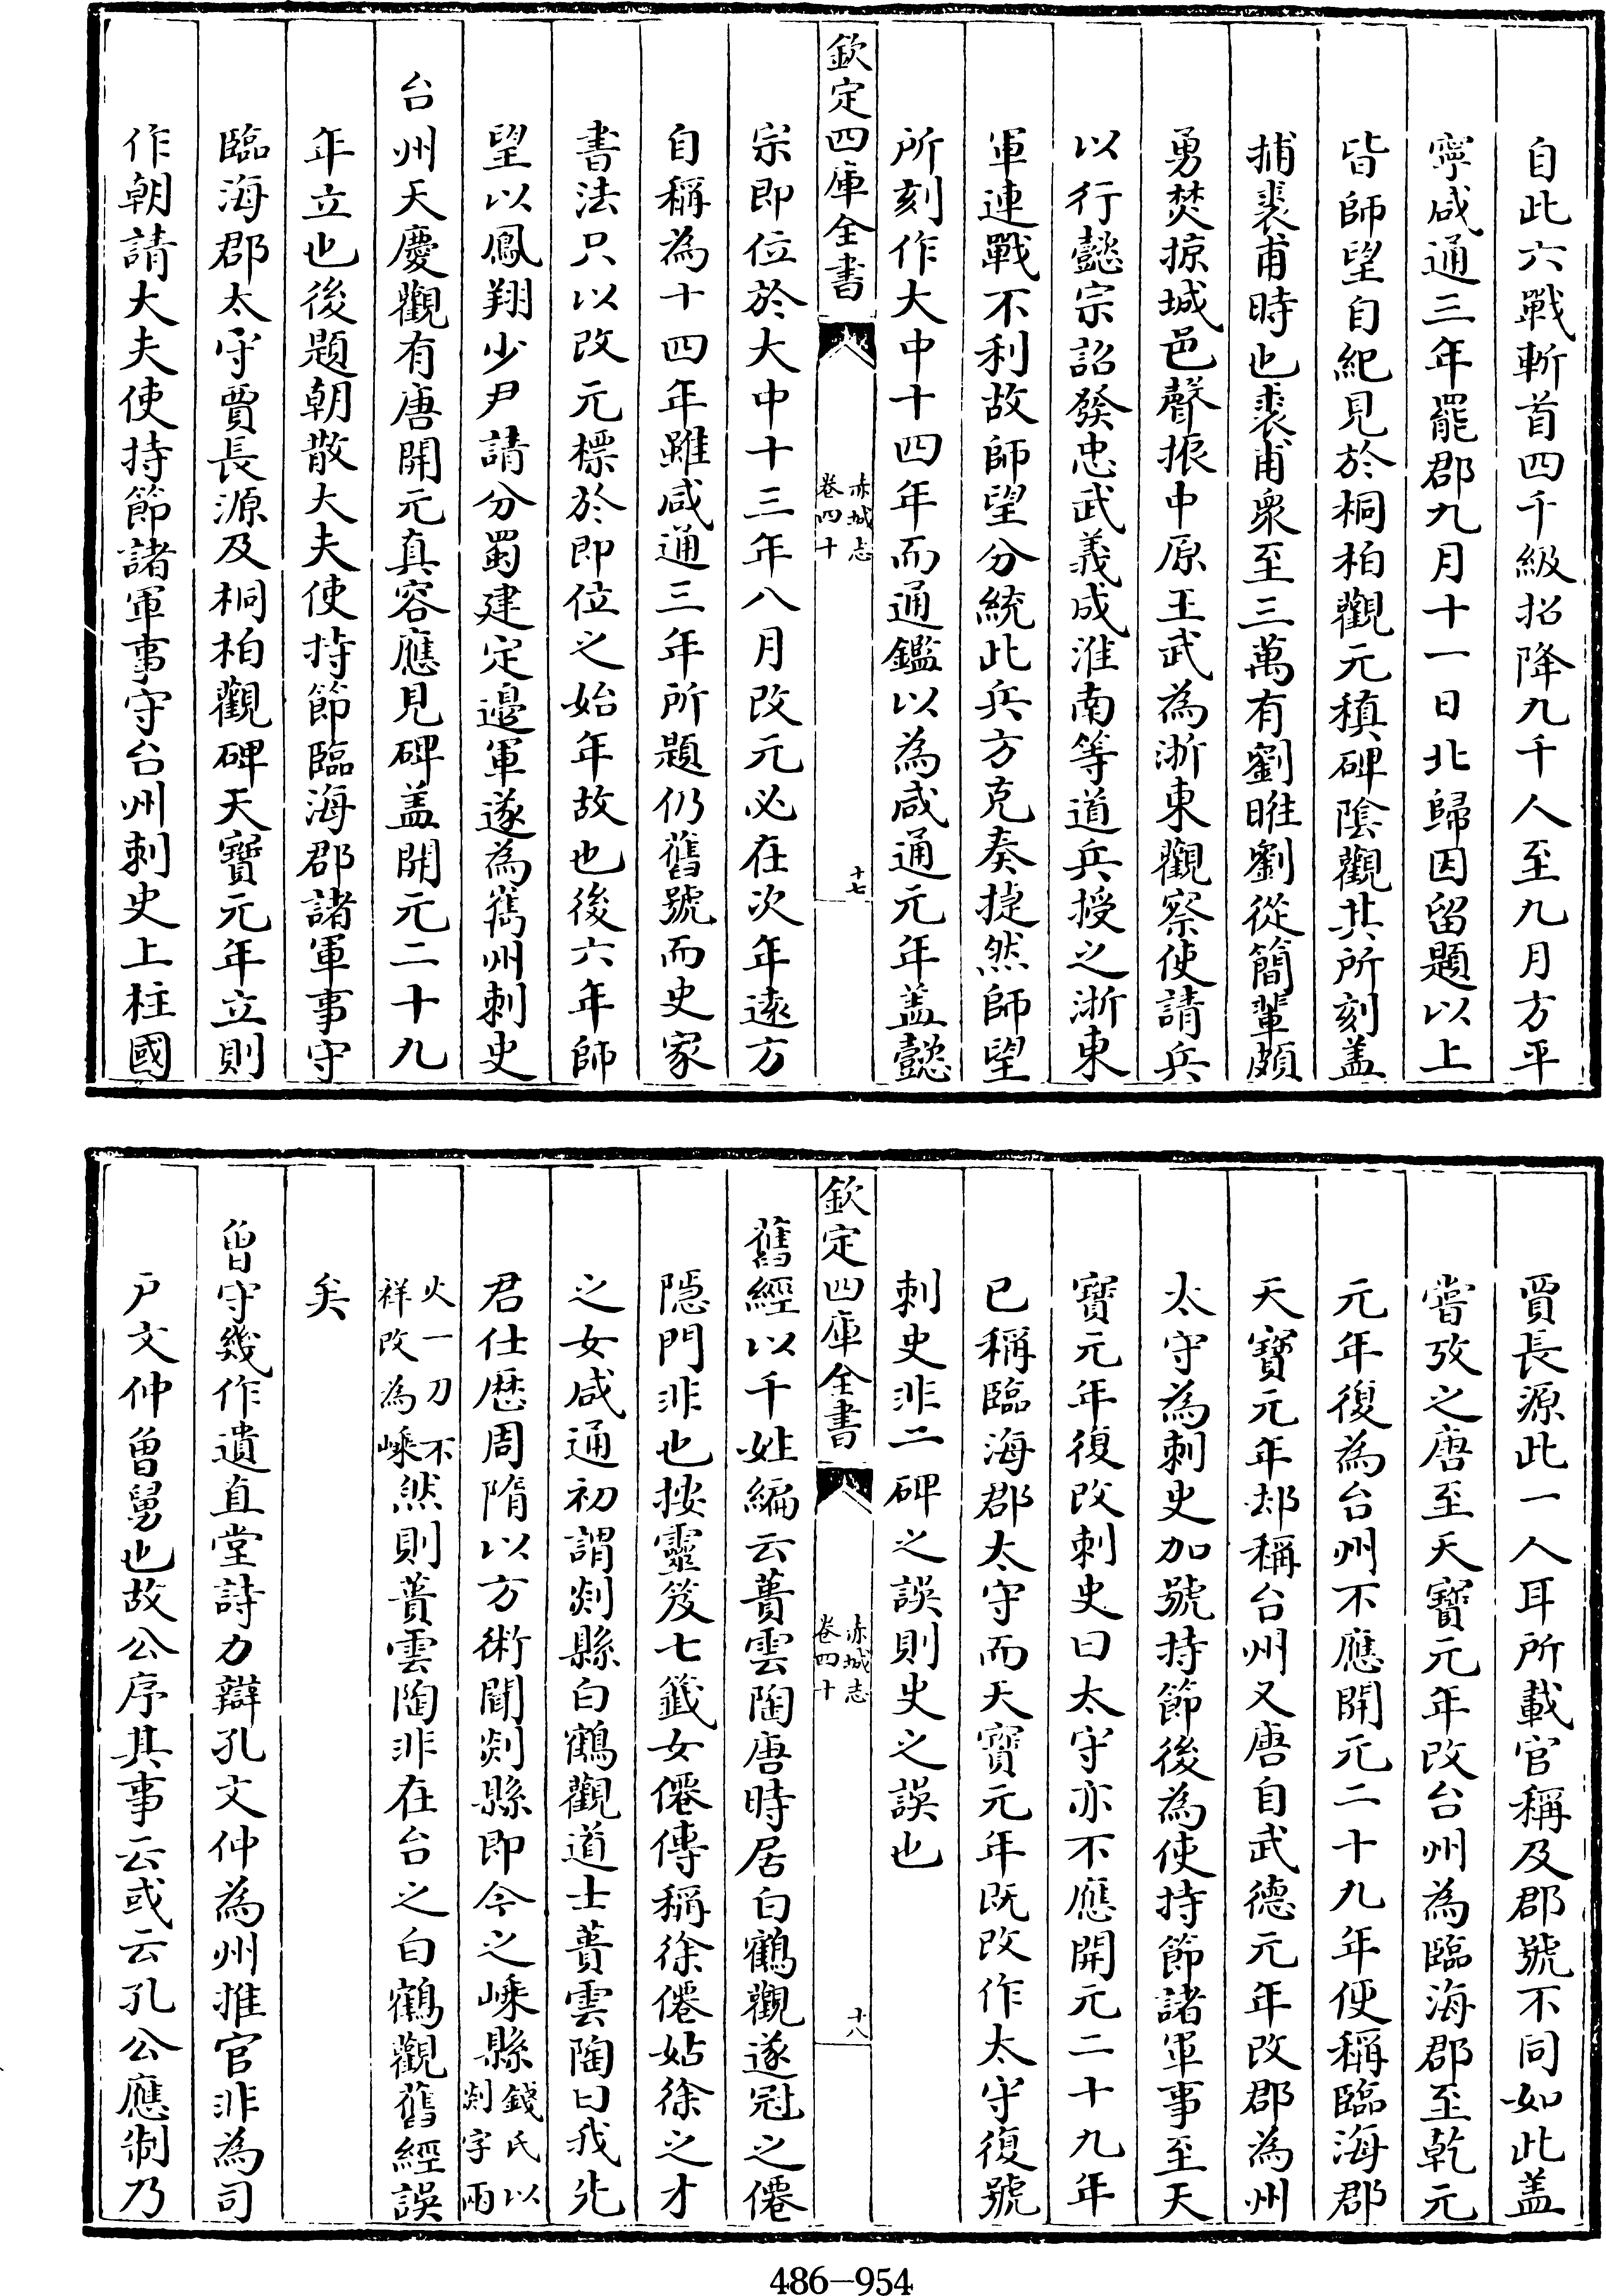 自此六戰斬首四千級招降九千人至九月方平
寧咸通三年罷郡九月十一日北歸因留題以上
皆師望自紀見於桐柏觀元稹碑陰觀其所刻盖
捕裘甫時也裘甫衆至三萬有劉暀劉從簡輩頗
勇焚掠城邑聲振中原王武為浙東觀察使請兵
以行懿宗詔發忠武義成淮南等道兵授之浙東
軍連戰不利故師望分統此兵方克奏捷然師望
所刻作大中十四年而通鑑以為咸通元年盖懿
欽定四庫全書
赤城志
卷四十
十七
宗即位於大中十三年八月改元必在次年遠方
自稱為十四年雖咸通三年所題仍舊號而史家
書法只以改元標於即位之始年故也後六年師
望以鳳翔少尹請分蜀建定邉軍遂為雋州刺史
台州天慶觀有唐開元真容應見碑盖開元二十九
年立也後題朝散大夫使持節臨海郡諸軍事守
臨海郡太守賈長源及桐柏觀碑天寶元年立則
作朝請大夫使持節諸軍事守台州刺史上柱國
賈長源此一人耳所載官稱及郡號不同如此盖
嘗攷之唐至天寶元年改台州為臨海郡至乾元
元年復為台州不應開元二十九年便稱臨海郡
天寶元年却稱台州又唐自武德元年改郡為州
太守為刺史加號持節後為使持節諸軍事至天
寶元年復改刺史曰太守亦不應開元二十九年
已稱臨海郡太守而天寶元年既改作太守復號
刺史非二碑之誤則史之誤也
欽定四庫全書
赤城志
卷四十
十八
舊經以千姓編云蕢雲陶唐時居白鶴觀遂冠之僊
隱門非也按靈笈七籤女僊傳稱徐僊姑徐之才
之女咸通初謂剡縣白鶴觀道士蕢雲陶曰我先
君仕歴周隋以方術聞剡縣即今之嵊縣錢氏以
剡字兩
火一刀不
祥改為嵊然則蕢雲陶非在台之白鶴觀舊經誤
矣
曾守幾作遺直堂詩力辯孔文仲為州推官非為司
戸文仲曾舅也故公序其事云或云孔公應制乃
486-954